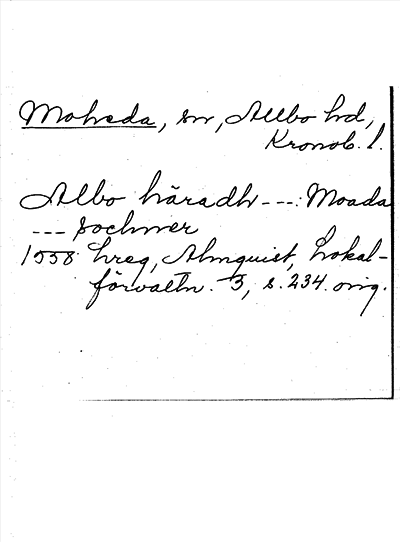 Moheda, sn, Allbo hd,
Kronob. l.
Albo häradh ---: Moada
--- sochner
1558 hreg, Almquist, Lokal-
förvaltn. 3, s. 234. orig.